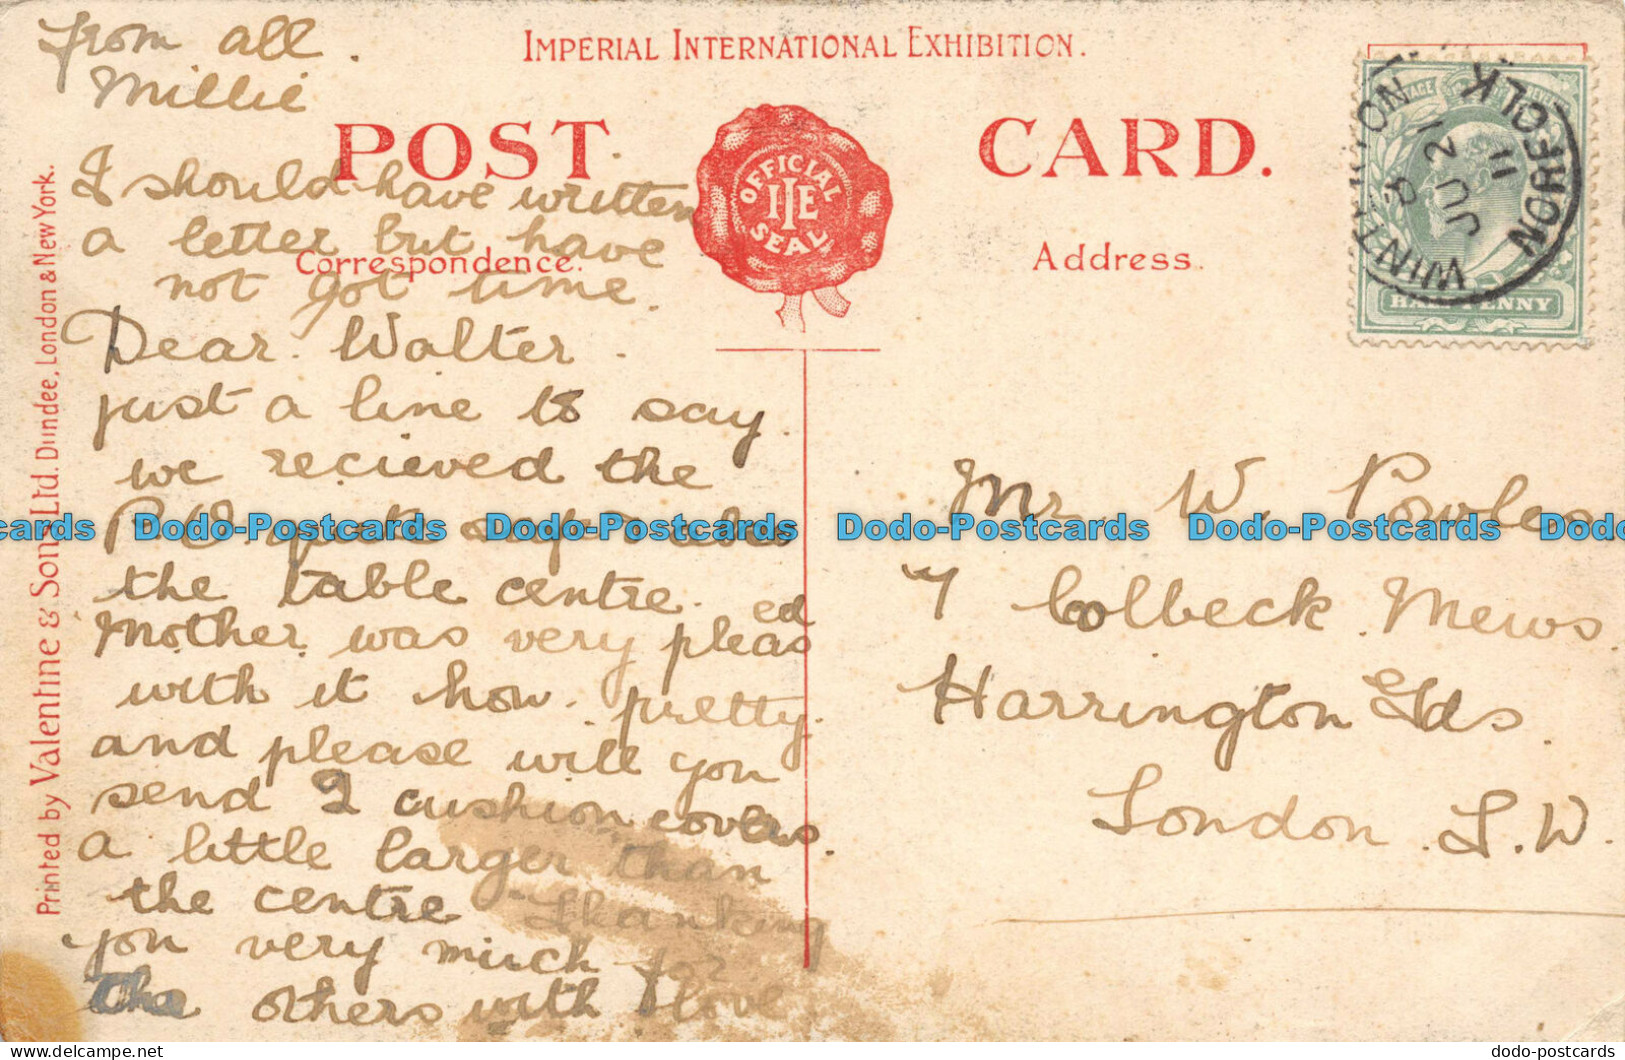 from all.
Millie
IMPERIAL INTERNATIONAL EXHIBITION.
POST CARD.
OFFICIAL
IIE
SEAL
I should have written
a letter but have
not got time.
Correspondence.
Address.
WHINT TON
8
JU 2
11
NORFOLK
HALFPENNY
Dear Walter.
just a line to say
we recieved the
P.O. quite safe
the table centre.
Mother was very pleased
with it how pretty.
and please will you
send 2 cushion covers.
a little larger than
the centre Thanking
you very much for
The others with love
Mr W. Powles
7 Colbeck Mews
Harrington Gds.
London S.W.
Printed by Valentine & Sons Ltd. Dundee, London & New York.
cards Dodo-Postcards Dodo-Postcards Dodo-Postcards Dodo-Postcards Dodo
dodo-postcards
dodo-postcards